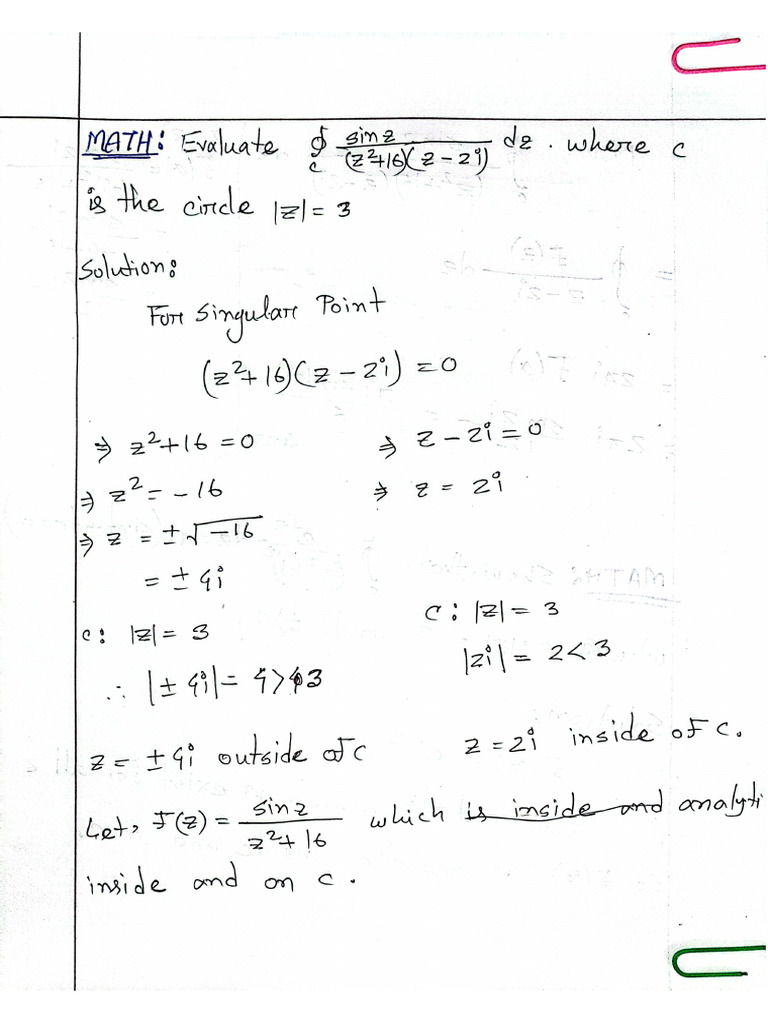 MATH: Evaluate ∮_c sinz/((z²+16)(z-2i)) dz. where c
is the circle |z|= 3
Solution:
For singular Point
(z²+16)(z-2i) = 0
⇒ z²+16 = 0    ⇒ z-2i = 0
⇒ z² = -16    ⇒ z = 2i
⇒ z = ±√-16
= ± 4i
c: |z| = 3    c: |z| = 3
∴ |± 4i| = 4 > 3    |2i| = 2 < 3
z = ± 4i outside of c    z = 2i inside of c.
Let, F(z) = sinz/(z²+16) which is inside and analyti
inside and on c.